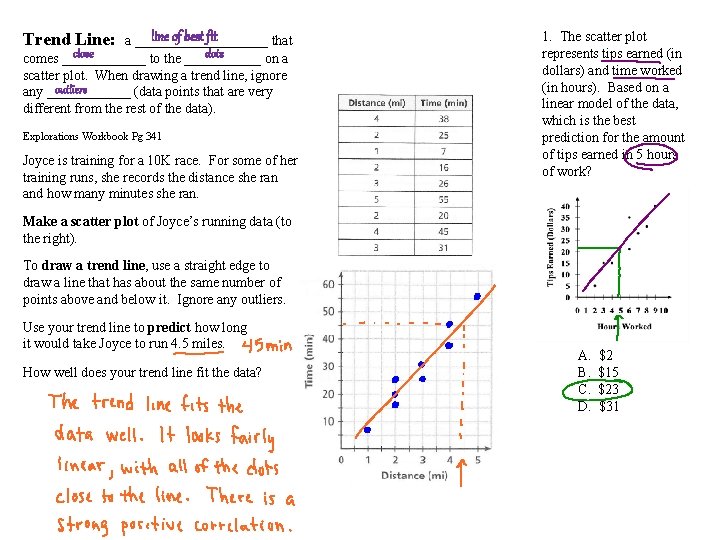 Trend Line: a line of best fit that
comes close to the dots on a
scatter plot. When drawing a trend line, ignore
any outliers (data points that are very
different from the rest of the data).
Explorations Workbook Pg 341
Joyce is training for a 10K race. For some of her
training runs, she records the distance she ran
and how many minutes she ran.
Make a scatter plot of Joyce's running data (to
the right).
To draw a trend line, use a straight edge to
draw a line that has about the same number of
points above and below it. Ignore any outliers.
Use your trend line to predict how long
it would take Joyce to run 4.5 miles. 45min
How well does your trend line fit the data?
The trend line fits the
data well. It looks fairly
linear, with all of the dots
close to the line. There is a
strong positive correlation.
Distance (mi) Time (min)
4 38
2 25
1 7
2 16
3 26
5 55
2 20
4 45
3 31
Time (min)
60
50
40
30
20
10
0 1 2 3 4 5
Distance (mi)
1. The scatter plot
represents tips earned (in
dollars) and time worked
(in hours). Based on a
linear model of the data,
which is the best
prediction for the amount
of tips earned in 5 hours
of work?
Tips Earned (Dollars)
40
35
30
25
20
15
10
5
0
1 2 3 4 5 6 7 8 9 10
Hours Worked
A. $2
B. $15
C. $23
D. $31